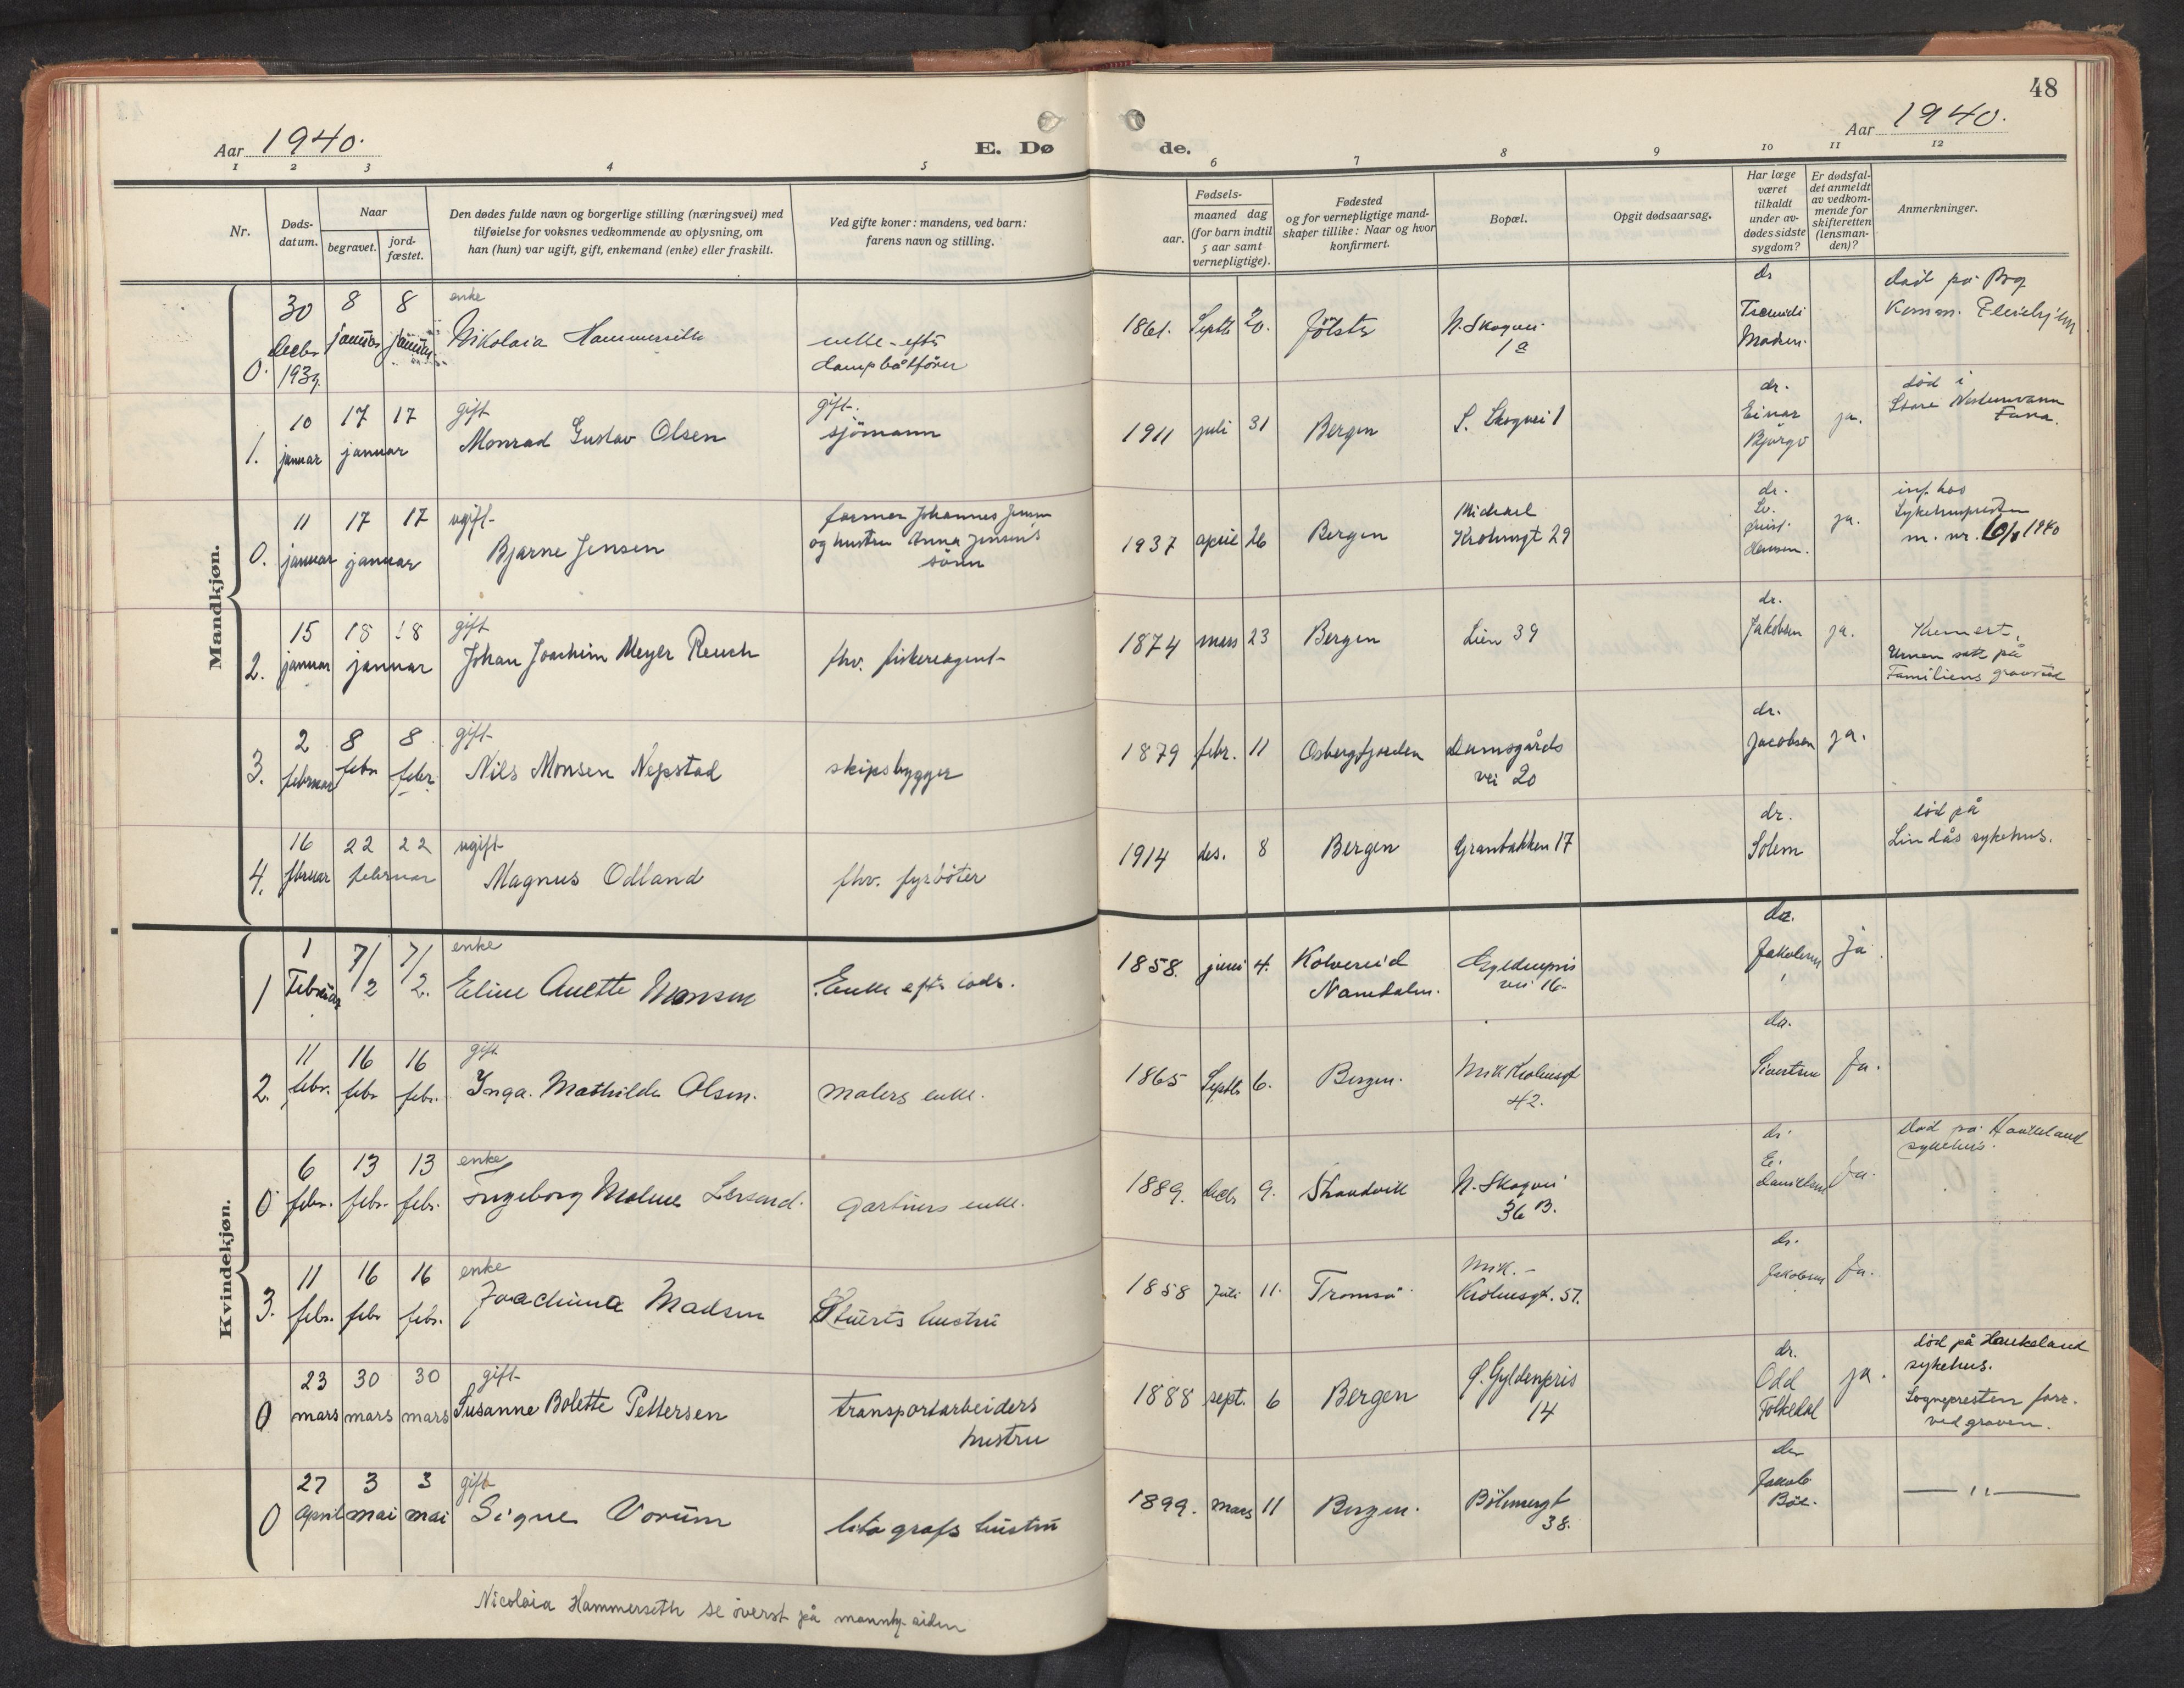 48
Aar 1940.
E. Dø de.
Aar 1940.
1 2 3 4 5 6 7 8 9 10 11 12
Nr.
Døds-
datum.
Naar
begravet.
jord-
fæstet.
Den dødes fulde navn og borgerlige stilling (næringsvei) med
tilføielse for voksnes vedkommende av oplysning, om
han (hun) var ugift, gift, enkemand (enke) eller fraskilt.
Ved gifte koner: mandens, ved barn:
farens navn og stilling.
Fødsels-
aar.
maaned dag
(for barn indtil
5 aar samt
vernepligtige).
Fødested
og for vernepligtige mand-
skaper tillike: Naar og hvor
konfirmert.
Bopæl.
Opgit dødsaarsag.
Har læge
været
tilkaldt
under av-
dødes sidste
sygdom?
Er dødsfal-
det anmeldt
av vedkom-
mende for
skifteretten
(lensman-
den)?
Anmerkninger.
Mandkjøn.
0. 30 Decbr 1939. 8 januar 8 januar
enke
Nikolaia Hammerseth
enke efter
dampbåtfører
1861. Septb 20. Jölster
N. Skogvei
1 a
dr
Madsen.
død på
Komm. Pleiehjem
1. 10 januar 17 17 januar
gift
Monrad Gustav Olsen
gift.
sjömann
1911 juli 31 Bergen S. Skogvei 1
dr.
Einar
Bjørgo
ja.
död i
Store
Fana.
0. 11 januar 17 17 januar
ugift
Bjarne Jensen
former Johannes Jensen
og hustru Anna Jensen's
sönn
1937 april 26 Bergen
Michael
Krohnsgt 29
dr.
Hansen.
ja.
inf. hos
Sykehuspresten
m. nr. 10/1940
2. 15 januar 18 18 januar
gift
Johan Joachim Meyer Reusch
fhv. fiskereagent
1874 mars 23 Bergen Lien 39
dr.
Jakobsen
ja.
Kremert.
Urnen satt på
Familiens gravsted
3. 2 februar 8 febr 8 febr.
gift
Nils Monsen Nepstad
skipsbygger
1879 febr. 11 Osbergfjorden
Damsgårds
vei 20
dr.
Jacobsen
ja.
4. 16 februar 22 22 februar
ugift
Magnus Odland
fhv. fyrböter
1914 des. 8 Bergen Granbakken 17
dr.
Solem
död på
Lindås sykehus.
Kvindekjøn.
1 1 Februar 7/2 7/2.
enke
Eline Anette Monsen
Enke efter
1858. juni 4.
Kolvereid
Namdalen.
Gyldenpris
vei 16.
dr.
Jakobsen
Ja.
2. 11 febr. 16 febr 16 febr.
gift
Inga Mathilde Olsen.
Malers enke.
1865 Septb 6. Bergen.
Mik Krohnsgt
42.
dr.
Sivertsen
Ja.
0 6 febr. 13 febr. 13 febr.
enke
Ingeborg Malene
Gartners enke.
1889. Decb 9. Strandvik
N. Skogvei
36 B.
dr.
Danielsen
Ja.
død på Haukeland
sykehus.
3. 11 febr. 16 febr 16 febr.
enke
Joachima Madsen
Stuerts hustru
1858 Juli 11. Tromsö
Mik.
Krohnsgt. 57.
dr.
Jakobsen
Ja.
0 23 mars 30 mars 30 mars
gift
Susanne Bolette Pettersen
transportarbeiders
hustru
1888 sept. 6 Bergen
Ø. Gyldenpris
14
dr.
Odd
Folkedal
ja.
död på Haukeland
sykehus.
Sognepresten forr.
ved graven.
0 27 April 3 mai 3 mai
gift
Signe Vorum
litografs hustru
1899. mars 11 Bergen.
Böhmergt
38.
dr
Jakob
Böe.
— " —
Nicolaia Hammerseth se överst på mannkj. siden